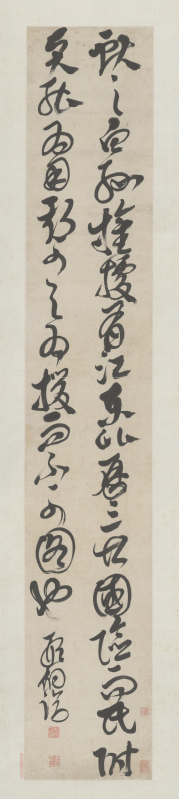 獻之白孫權據有江東已歷三世國險而民附
賢能為用此可以為援而不可圖也
邢侗臨